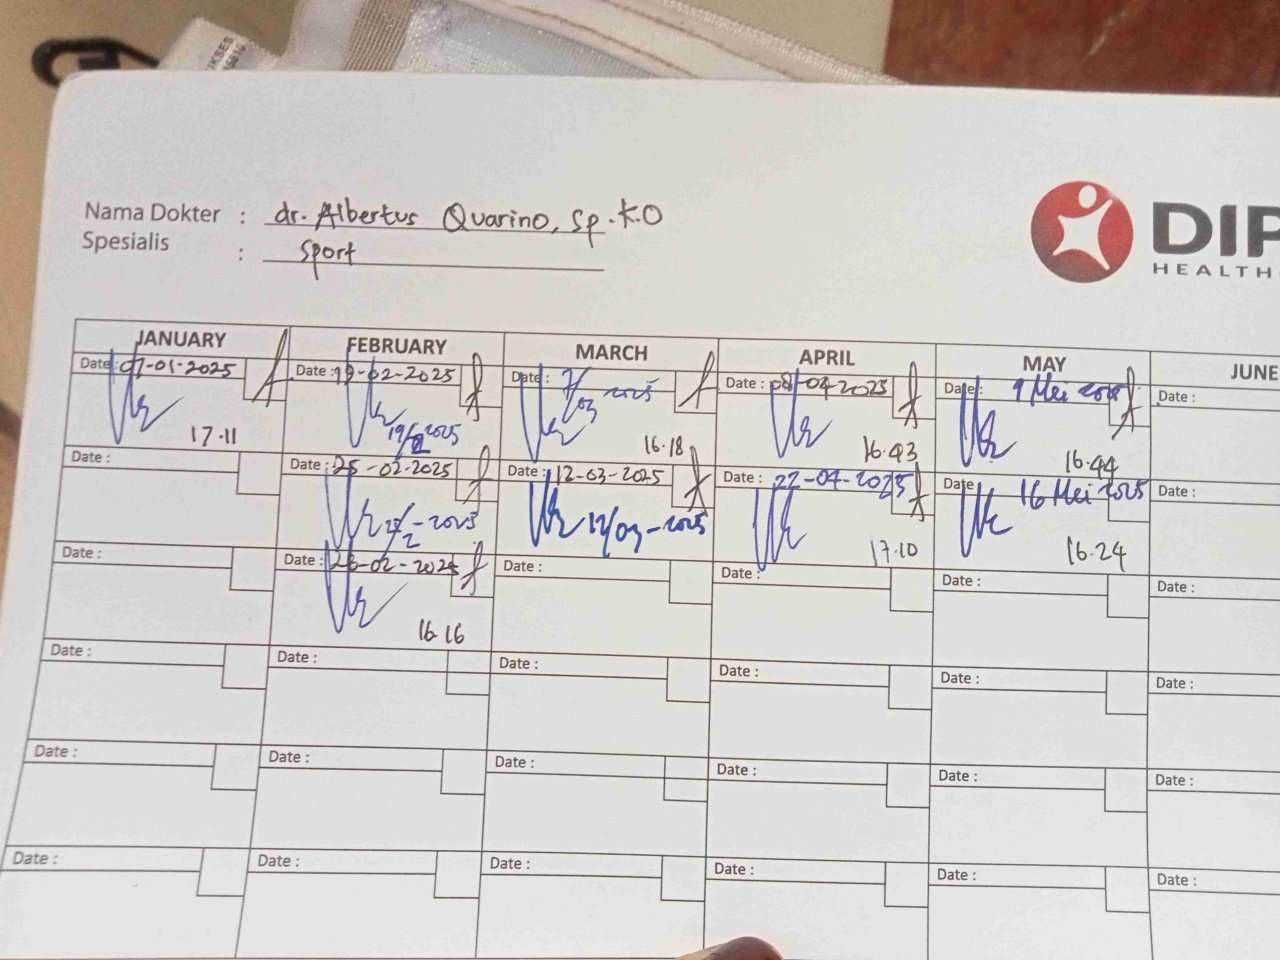 Nama Dokter : dr. Albertus Quarino, Sp.K.O
Spesialis : Sport
DIP
HEALTHC
JANUARY FEBRUARY MARCH APRIL MAY JUNE
Date: 07-01-2025 Date: 19-02-2025 Date: 7/03 2025 Date: 08-04-2025 Date: 9 Mei 2025 Date :
17.11 19/2 2025 16.18 16.43 16.44
Date : Date: 25-02-2025 Date: 12-03-2025 Date : 22-04-2025 Date 16 Mei 2025 Date :
25/2-2025 12/03-2025 17.10 16.24
Date : Date: 28-02-2025 Date : Date : Date : Date :
16.16
Date : Date : Date : Date : Date : Date :
Date : Date : Date : Date : Date : Date :
Date : Date : Date : Date : Date : Date :